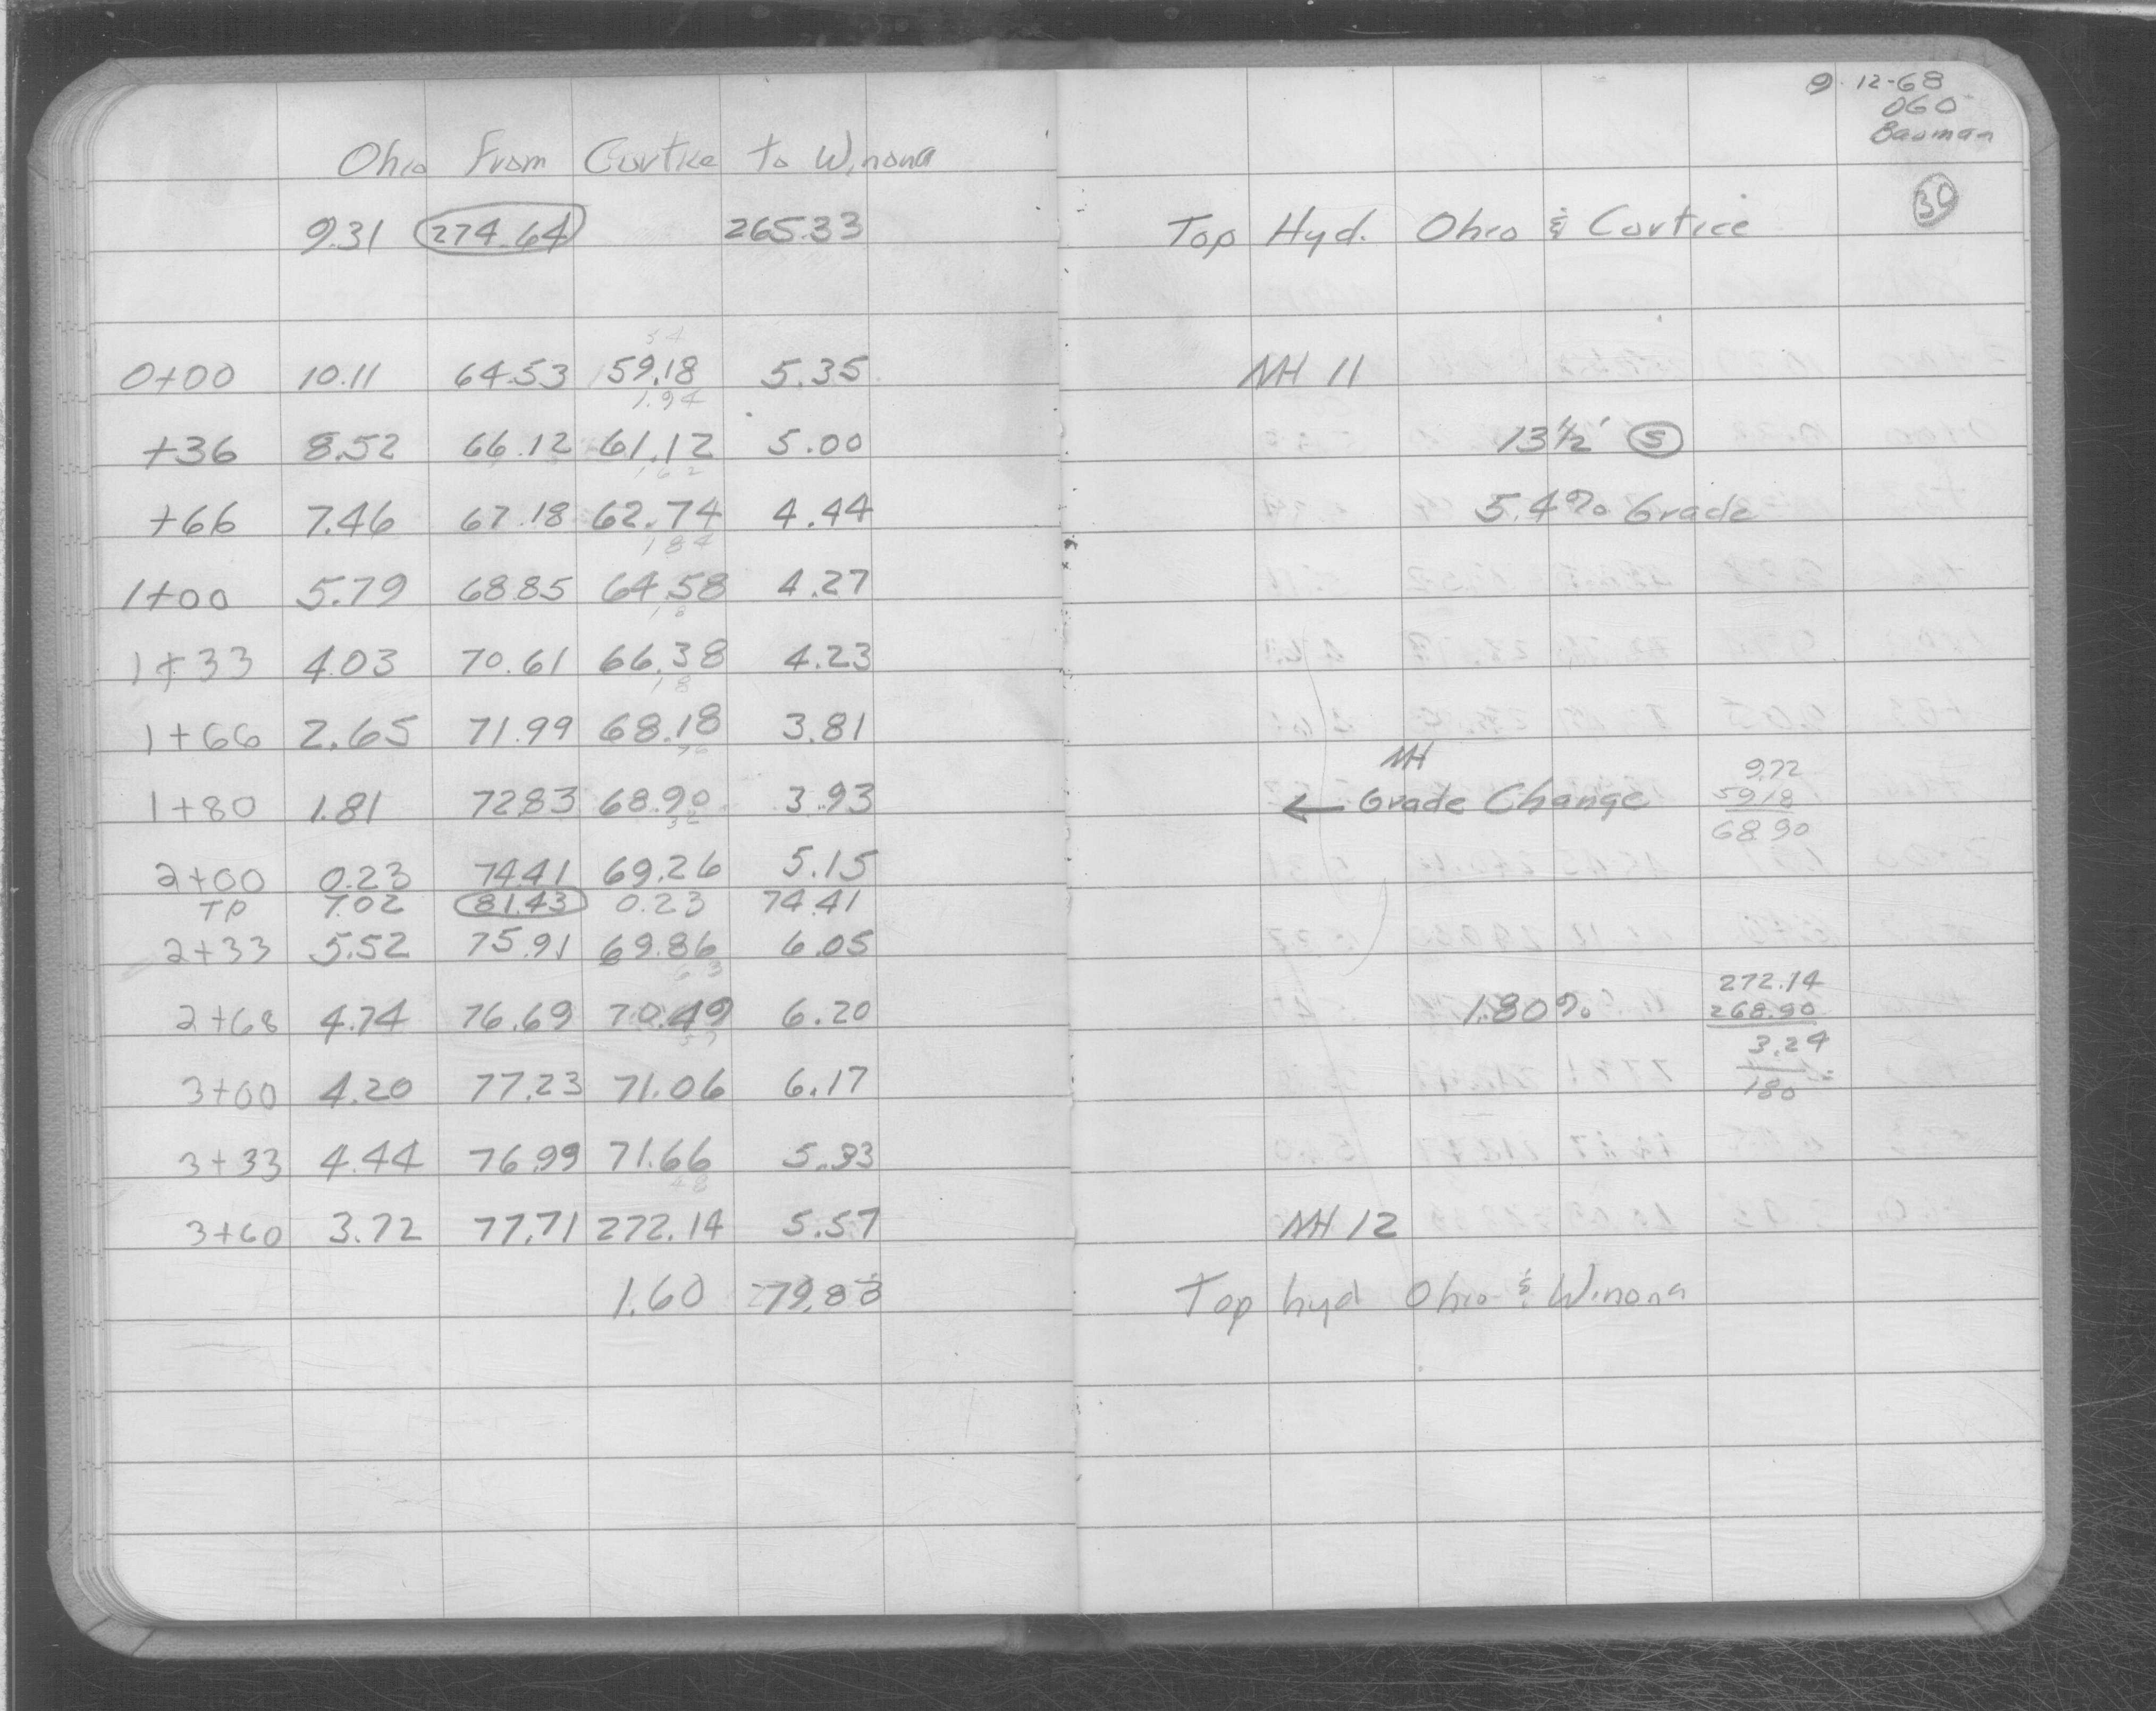 Ohio From Curtice to Winona
9.31 274.64 265.33
54
0+00 10.11 64.53 59.18 5.35
1.94
+36 8.52 66.12 61.12 5.00
1 6 2
+66 7.46 67.18 62.74 4.44
1 8 4
1+00 5.79 68.85 64.58 4.27
1 8
1+33 4.03 70.61 66.38 4.23
1 8
1+66 2.65 71.99 68.18 3.81
1+80 1.81 72.83 68.90 3.93
2+00 0.23 74.41 69.26 5.15
TP 7.02 81.43 0.23 74.41
2+33 5.52 75.91 69.86 6.05
6 3
2+68 4.74 76.69 70.49 6.20
3+00 4.20 77.23 71.06 6.17
3+33 4.44 76.99 71.66 5.33
4 8
3+60 3.72 77.71 272.14 5.57
1.60 79.83
9-12-68
060
Bauman
30
Top Hyd. Ohio & Curtice
MH 11
13½' S
5.4% Grade
MH
← Grade Change
9.72
59.18
68.90
1.80%
272.14
268.90
3.24
180
MH 12
Top hyd Ohio & Winona